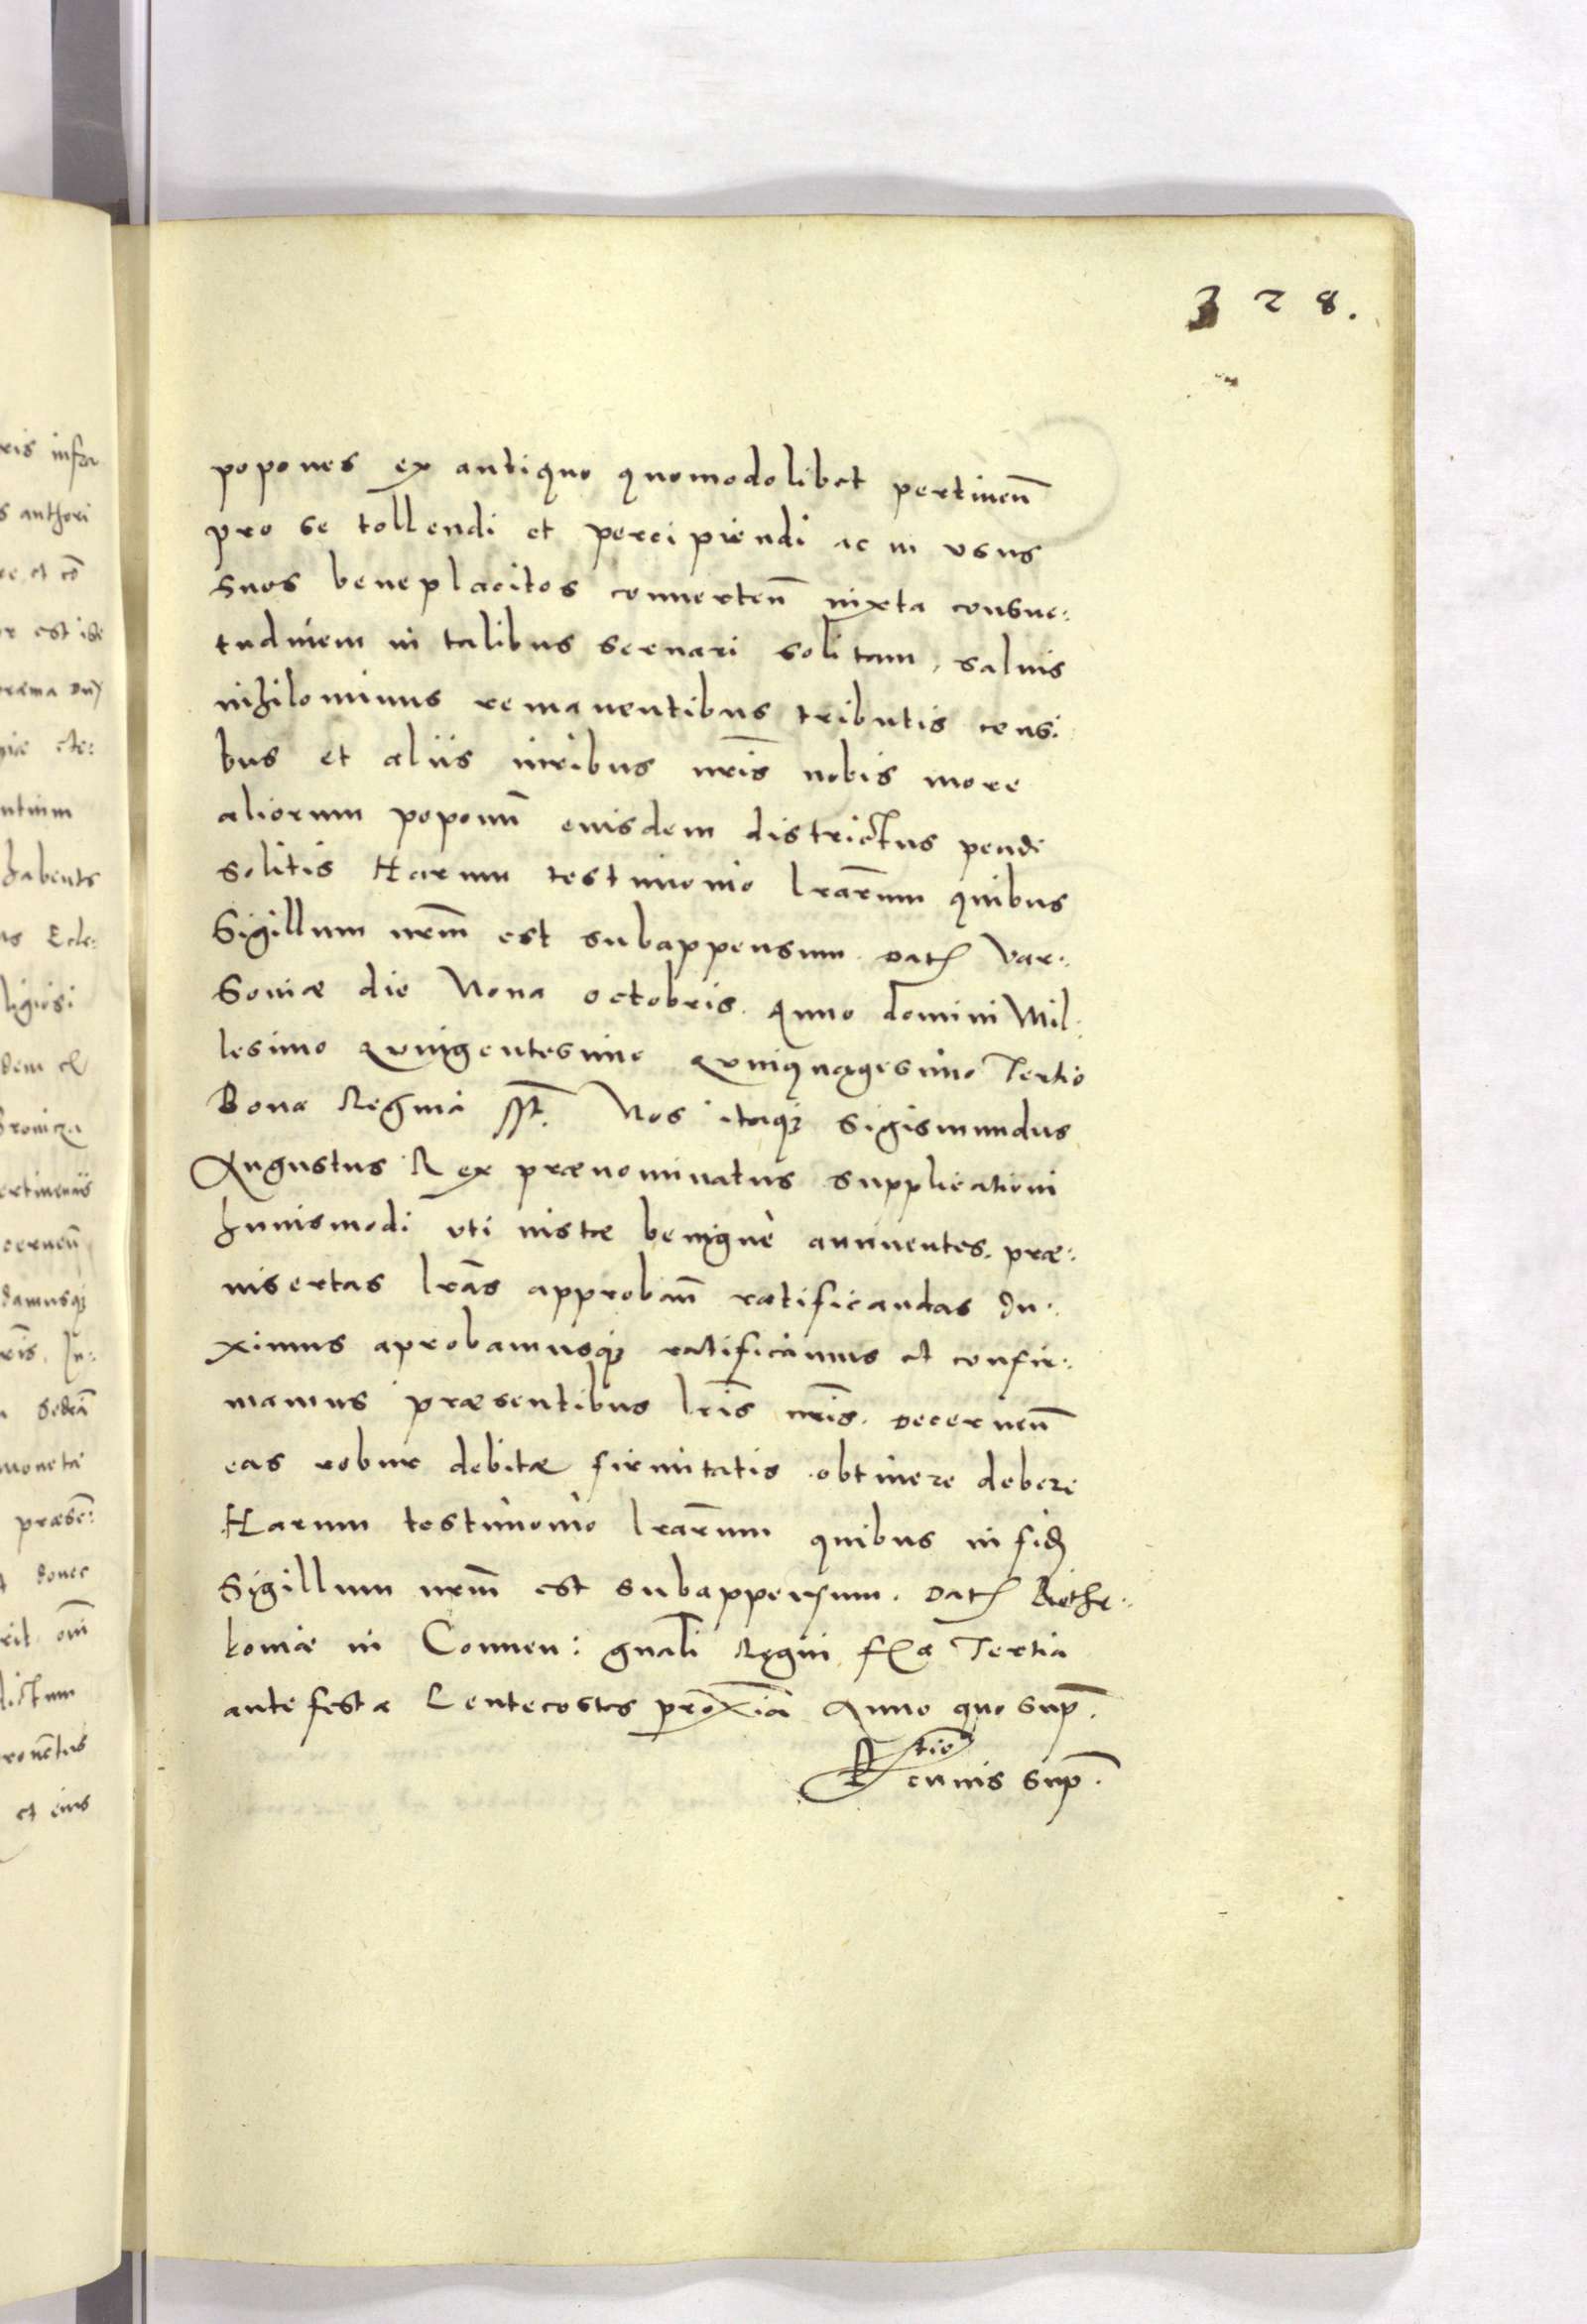 328.
popones ex antiquo quomodolibet pertineñ
pro se tollendi et percipiendi ac in vsus
suos beneplacitos conuerteñ iuxta consue:
tudinem in talibus seruari solitam, saluis
nihilominus remanentibus tributis censi:
bus et aliis iuribus nr̃is nobis more
aliorum poponũ eiusdem districtus pendi
solitis Harum testimonio lrãrum quibus
Sigillum nrm̃ est subappensum. Dat Var:
souiæ die Nona octobris. Anno domini Mil:
lesimo Quingentesimo Quinquagesimo Tertio
Bona Regina sst. Nos itaq3 Sigismundus
Augustus Rex prænominatus supplicationi
huiusmodi uti iustæ benignè annuentes. præ:
insertas lrãs approbañ ratificandas du:
ximus aprobamusq3 ratificamus et confir:
mamus præsentibus lrĩs nrĩs. Decerneñ
eas robur debitæ firmitatis obtinere debere
Harum testimonio lrãrum quibus in fid
Sigillum nrm̃ est subappensum. Dat Piethr:
kouiæ in Conuen: gnali Regni f a Tertia
ante festa Pentecostes proxĩa Anno quo sup.
R tio
cuius sup.
ris infra
s authori
re et cõ
or est ibi
habents
us Eccle:
ligiosi
dem
Bronicza
ertinentiis
cerneñ
damusq3
ris. In:
monetæ
præsẽ:
donec
rit
dictum
et eius